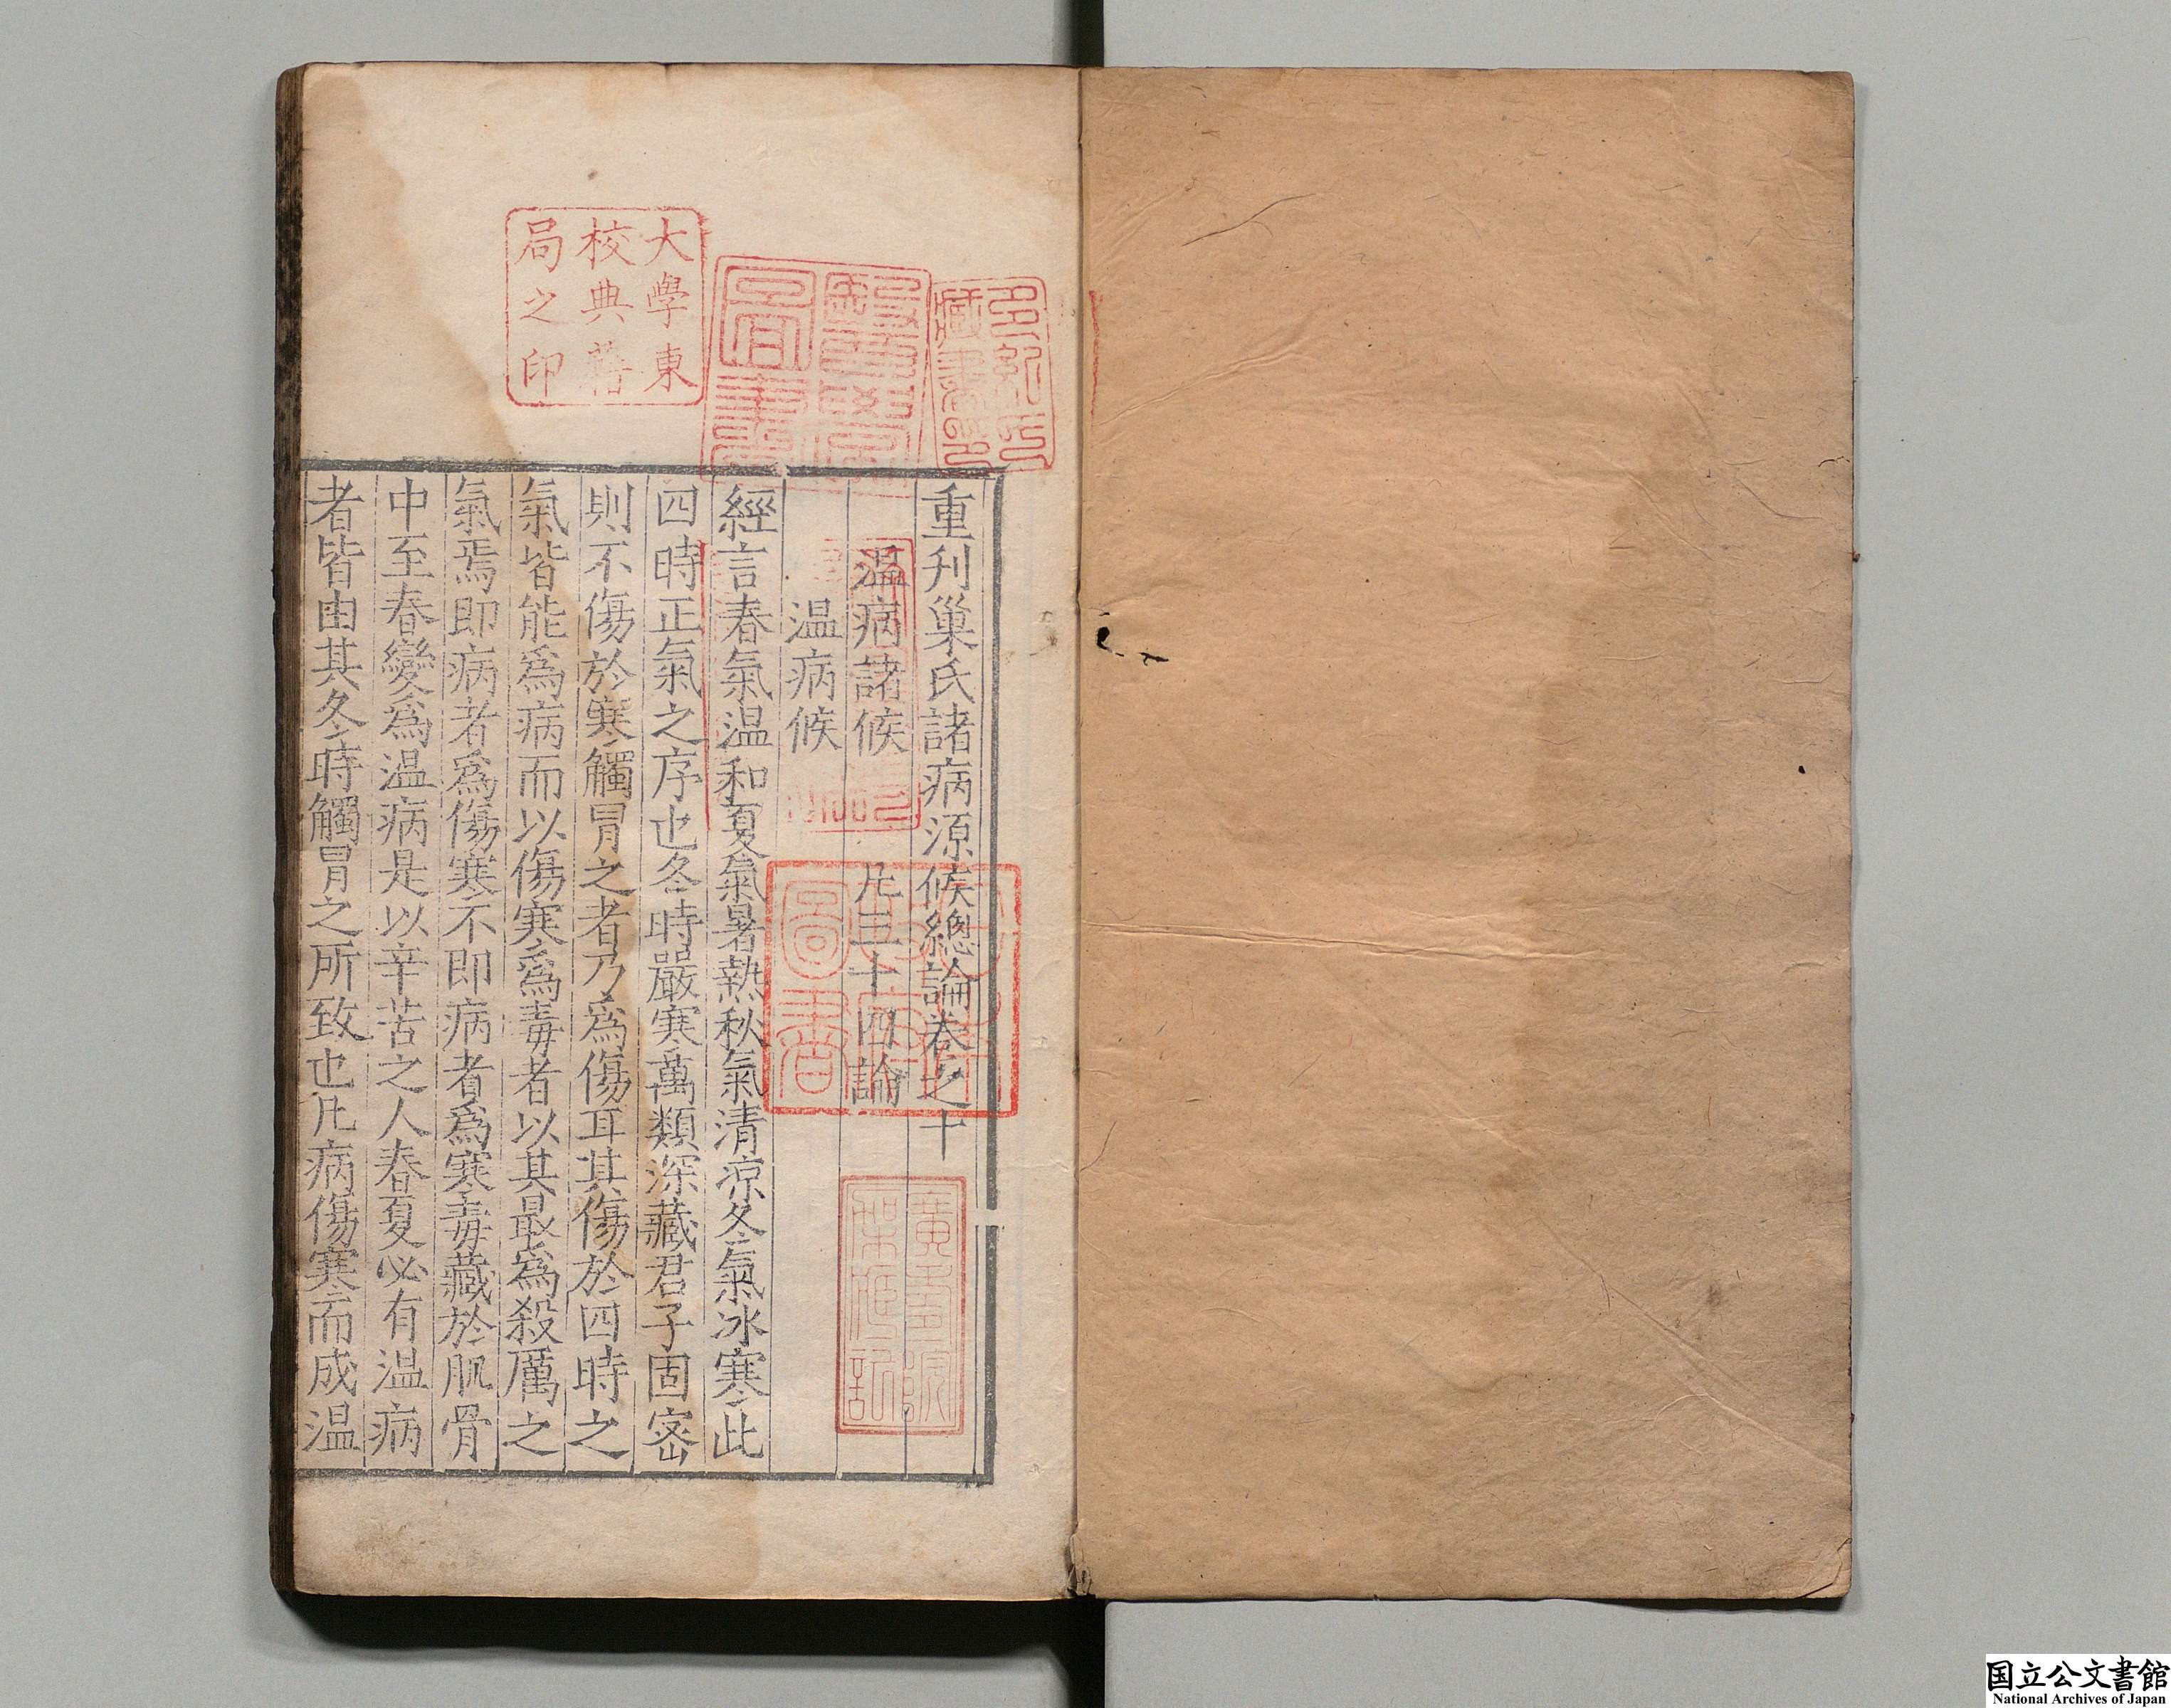 重刊巢氏諸病源候總論卷之十
温病諸候 凢三十四論
温病候
經言春氣温和夏氣暑熱秋氣清凉冬氣冰寒此
四時正氣之序也冬時嚴寒萬類深藏君子固宻
則不傷於寒觸冒之者乃爲傷耳其傷於四時之
氣皆能爲病而以傷寒爲毒者以其最爲殺厲之
氣焉即病者爲傷寒不即病者爲寒毒藏於肌骨
中至春變爲温病是以辛苦之人春夏必有温病
者皆由其冬時觸冒之所致也凢病傷寒而成温
多紀氏
藏書印
醫學
圖書
大學東
校典籍
局之印
廣壽院
架藏記
国立公文書館
National Archives of Japan